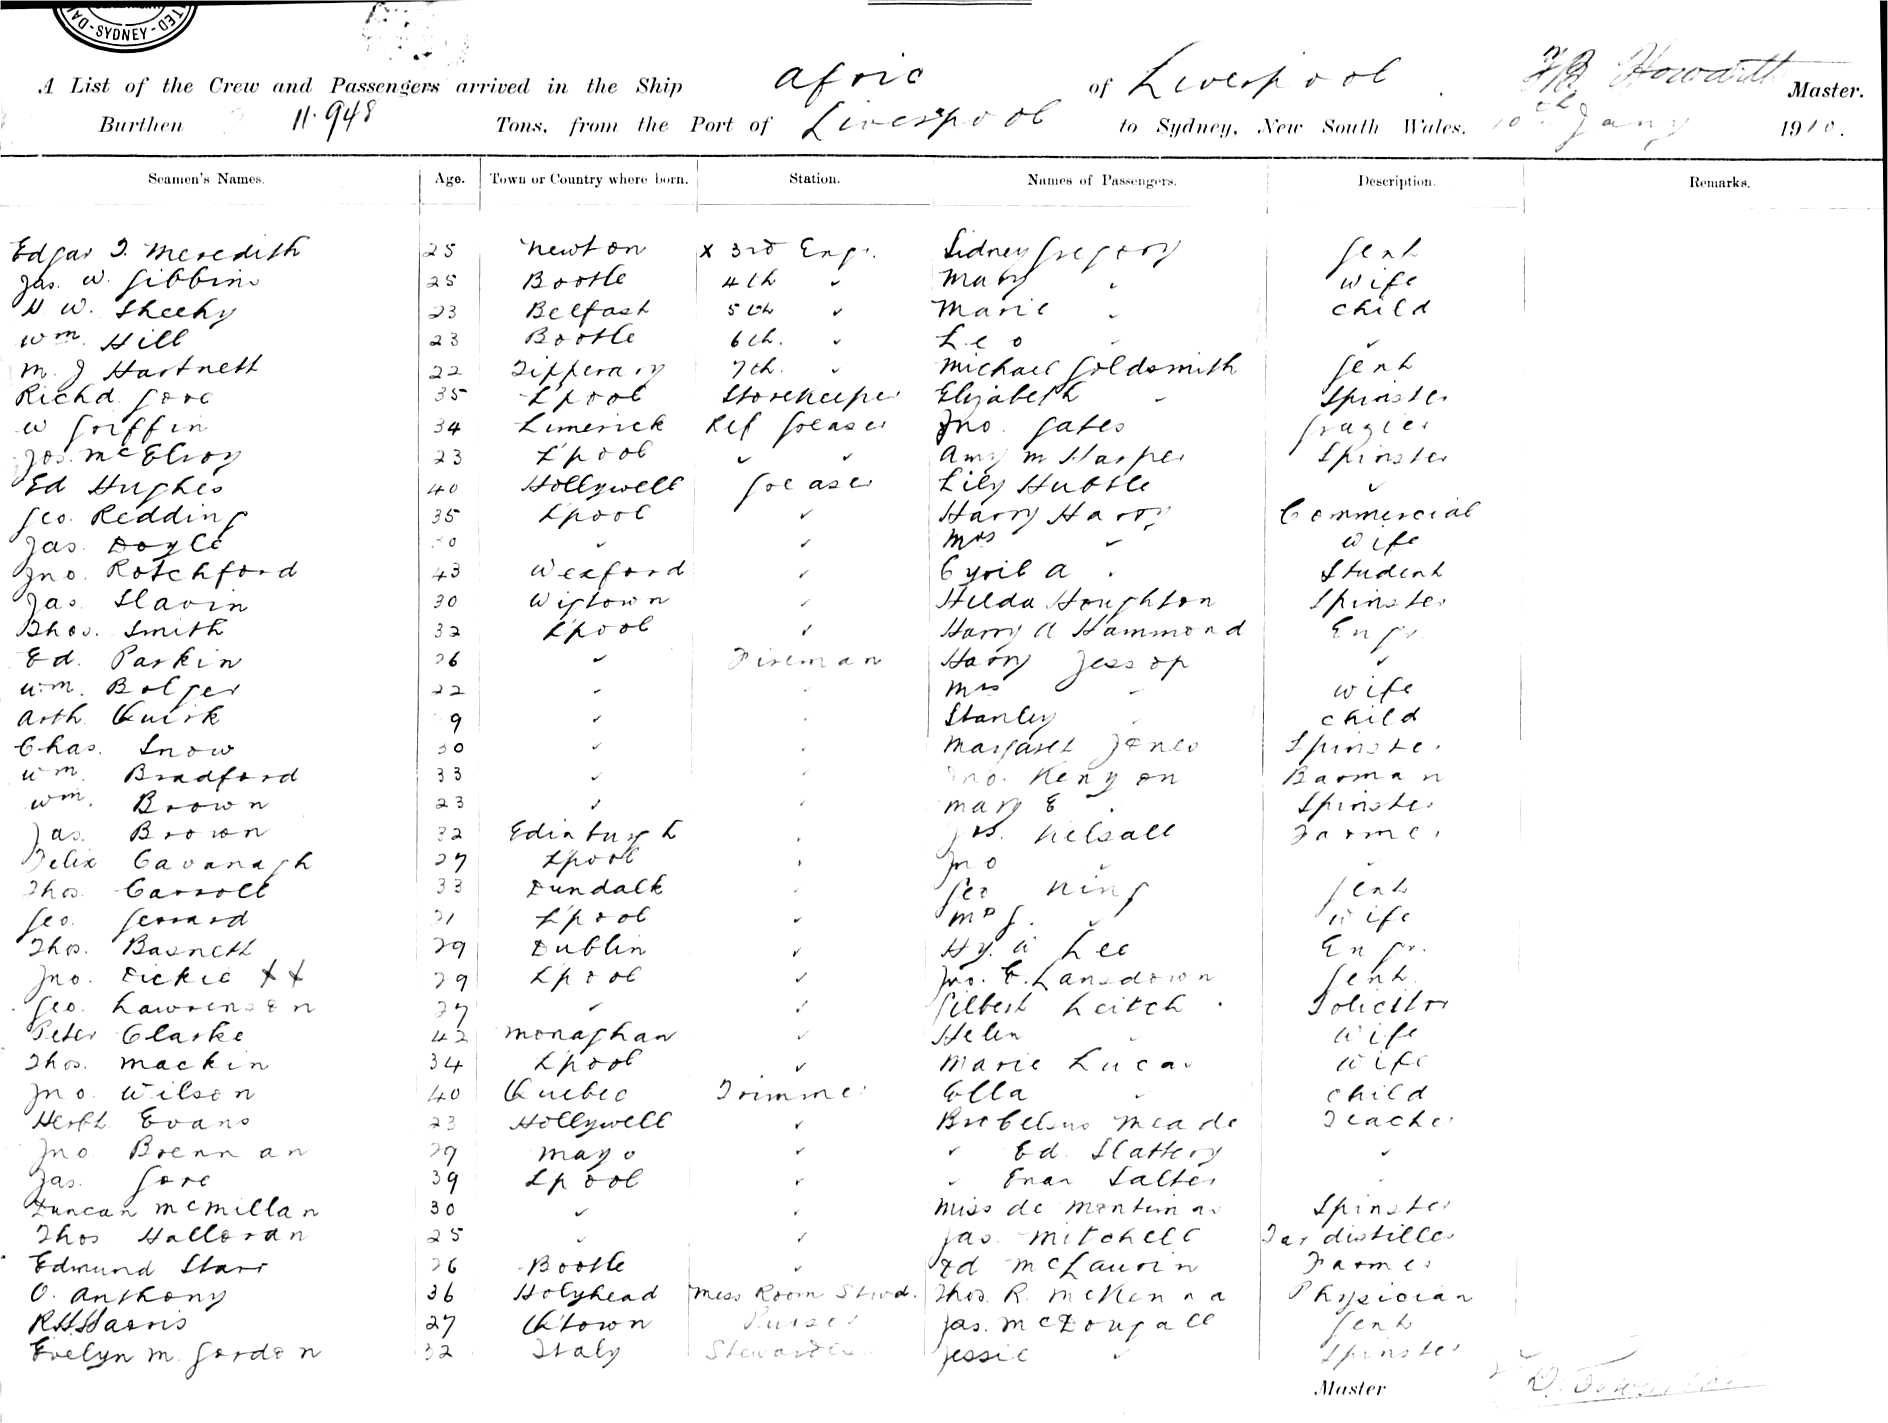 SYDNEY
A List of the Crew and Passengers arrived in the Ship Afric of Liverpool Howarth Master.
Burthen 11.948 Tons, from the Port of Liverpool to Sydney, New South Wales, 10th Jany 1910.
Seamen's Names. Age. Town or Country where born. Station. Names of Passengers. Description. Remarks.
Edgar J. Meredith 25 Newton x 3rd Engr. Sidney Gregory Gent
Jas. W. Gibbins 25 Bootle 4th ✓ Mary ✓ Wife
W. Sheehy 23 Belfast 5th ✓ Marie ✓ Child
Wm. Hill 23 Bootle 6th. ✓ Leo ✓ ✓
M. J Hartnett 22 Tipperary 7th. ✓ Michael Goldsmith Gent
Richd. Gore 35 L'pool Storekeeper Elizabeth ✓ Spinster
W Griffin 34 Limerick Ref Greaser Jno. Gates Grazier
Jos. McElroy 23 L'pool ✓ ✓ Amy M Harper Spinster
Ed Hughes 40 Hollywell Greaser Lily Hubble ✓
Geo. Redding 35 L'pool ✓ Harry Harry Commercial
Jas. Doyle ✓ ✓ Mrs ✓ Wife
Jno. Rotchford 43 Wexford ✓ Cyril A ✓ Student
Jas. Slavin 30 Wigtown ✓ Hilda Houghton Spinster
Thos. Smith 32 L'pool ✓ Harry A Hammond Engr
Ed. Parkin 26 ✓ Fireman Harry Jessop ✓
Wm. Bolger 22 ✓ ✓ Mrs ✓ Wife
Arth. Quirk ✓ ✓ Stanley ✓ Child
Chas. Snow 30 ✓ ✓ Margaret Jones Spinster
Wm. Bradford 33 ✓ ✓ Jno. Kenyon Barman
Wm. Brown 23 ✓ ✓ Mary E ✓ Spinster
Jas. Brown 32 Edinburgh ✓ Jos. Kelsall Farmer
Felix Cavanagh 27 L'pool ✓ Jno ✓ ✓
Thos. Carroll 33 Dundalk ✓ Geo King Gent
Geo. Gerrard 21 L'pool ✓ Mrs G. ✓ Wife
Thos. Basneth 29 Dublin ✓ Hy. A Lee Engr.
Jno. Dickie xx 29 L'pool ✓ Jno. E. Lansdown Gent
Geo. Lawrenson 27 ✓ ✓ Gilbert Leitch Solicitor
Peter Clarke 42 Monaghan ✓ Helen ✓ Wife
Thos. Mackin 34 L'pool ✓ Marie Lucas Wife
Jno. Wilson 40 Quebec Trimmer Ella ✓ Child
Herbt. Evans 23 Hollywell ✓ Meade Teacher
Jno Brennan 29 Mayo ✓ ✓ Ed. Slattery ✓
Jas. Gore 39 L'pool ✓ ✓ Salter ✓
Duncan McMillan 30 ✓ ✓ Miss de Spinster
Thos Halloran 25 ✓ ✓ Jas. Mitchell Tar distiller
Edmund Starr 26 Bootle ✓ Ed McLaurin Farmer
O. Anthony 36 Holyhead Mess Room Stwd. Thos. R. McKenna Physician
R H Harris 27 Q'town Purser Jas. McDougall Gent
Evelyn M. Gordon 32 Italy Stewardess Jessie ✓ Spinster
Master